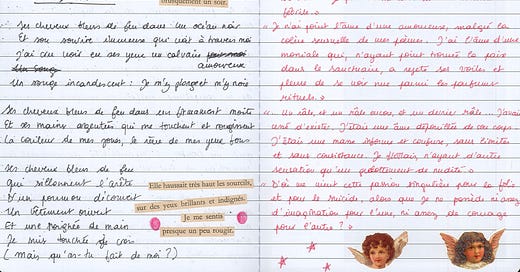 brusquement un soir.
Ses cheveux bleus de feu dans un océan noir
Et son sourire immense qui voit à travers moi
J'ai cru voir en ses yeux un calvaire
amoureux
Un rouge incandescent : Je m'y plonge et m'y noie
Ses cheveux bleus de feu dans un firmament moite
Et ses mains argentées qui me touchent et rougissent
La couleur de mes joues, le rêve de mes yeux fous
Ses cheveux bleus de feu
qui sillonnent l'arête
D'un poumon découvert
Un vêtement ouvert
Et une poignée de main
Je suis touchée de croix
( mais qu'as-tu fait de moi ? )
Elle haussait très haut les sourcils,
sur des yeux brillants et indignés.
Je me sentis
presque un peu rougir.
fébrile. »
« Je n'ai point l'âme d'une amoureuse, malgré la
colère sensuelle de mes poèmes. J'ai l'âme d'une
moniale qui, n'ayant point trouvé la paix
dans le sanctuaire, a rejeté ses voiles et
pleure de se voir nue parmi les parfums
rituels. »
« Un râle et un râle encor, et un dernier râle... J'avais
cessé d'exister. J'étais une âme dépossédée de son corps.
J'étais une masse informe et confuse, sans limites
et sans consistance. Je flottais, n'ayant d'autre
sensation qu'un grelottement de nudité. »
« D'où me vient cette passion singulière pour la folie
et pour le suicide, alors que je ne possède ni assez
d'imagination pour l'une, ni assez de courage
pour l'autre ? »